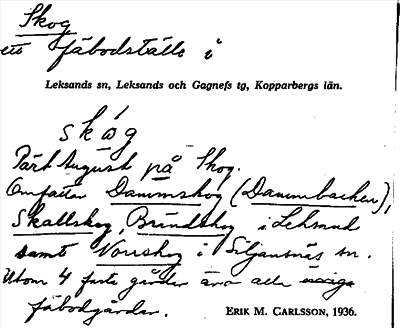 Skog
ett fäbodställe i
Leksands sn, Leksands och Gagnefs tg, Kopparbergs län.
skóg
Pärt August på Skog.
Omfattar Dammskog (Dammbacken),
Skallskog, Brindskog i Leksand
samt Norskog i Siljansnäs sn.
Utom 4 fasta gårdar äro alla övriga
fäbodgårdar.
ERIK M. CARLSSON, 1936.